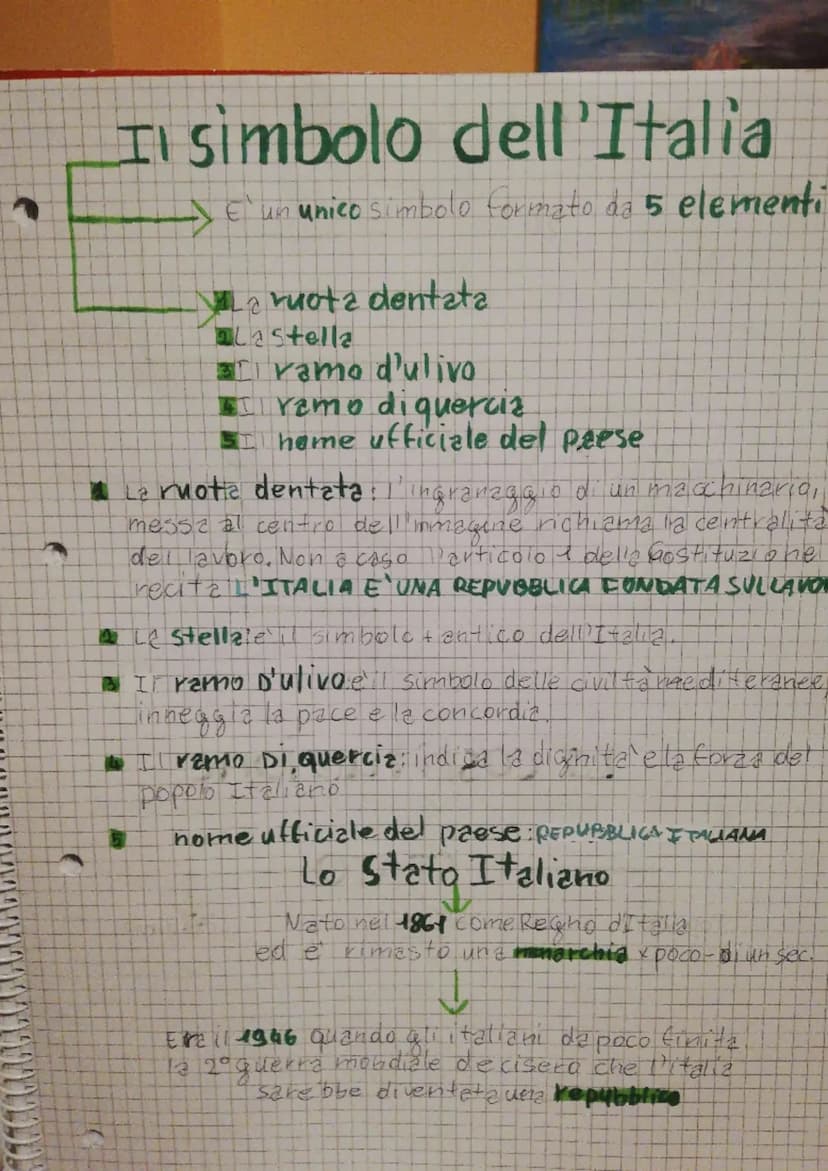 Il simbolo dell'Italia
E' un unico simbolo formato da 5 elementi
1 La ruota dentata
2 La stella
3 Il ramo d'ulivo
4 Il ramo di quercia
5 Il nome ufficiale del paese
1 La ruota dentata: l'ingranaggio di un macchinario,
messa al centro dell'immagine richiama la centralità
del lavoro. Non a caso l'articolo 1 della Costituzione
recita L'ITALIA E' UNA REPUBBLICA FONDATA SUL LAVO
2 La stella: è il simbolo + antico dell'Italia.
3 Il ramo D'ulivo: è il simbolo delle civiltà mediteranee,
inneggia la pace e la concordia.
4 Il ramo Di quercia: indica la dignita' e la forza del
popolo Italiano
5 nome ufficiale del paese: REPUBBLICA ITALIANA
Lo Stato Italiano
Nato nel 1861 come Regno d'Italia
ed e' rimasto una monarchia x poco - di un sec.
Era il 1946 quando gli italiani da poco finita
la 2° guerra mondiale decisero che l'italia
sarebbe diventata una repubblica